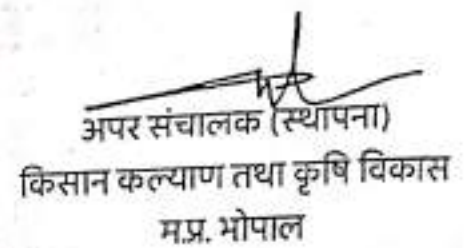 अपर संचालक (स्थापना)
किसान कल्याण तथा कृषि विकास
म.प्र. भोपाल